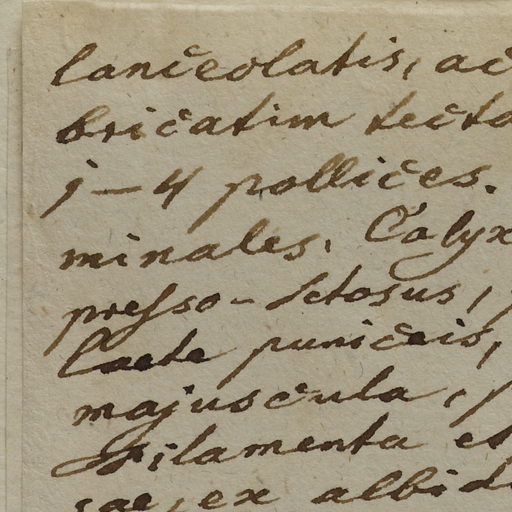 lanceolatis, ac
bricatim tecto
j-4 pollices.
minales. Calyx
presso-setosus,
laete puniceis,
majuscula,
Filamenta et
sae, ex albid